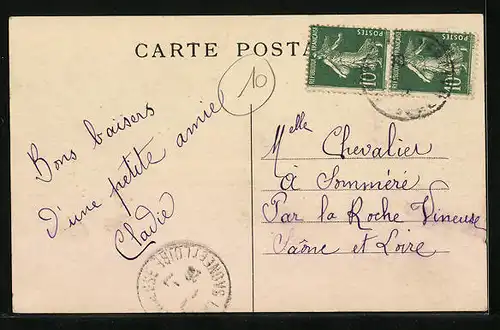 CARTE POSTA
REPUBLIQUE FRANÇAISE
POSTES
10c
REPUBLIQUE FRANÇAISE
POSTES
10c
10
Bons baisers
d'une petite amie
Cladie
Melle Chevalier
à Sommeré
Par la Roche Vineuse
Saône et Loire
SAONE-ET-LOIRE